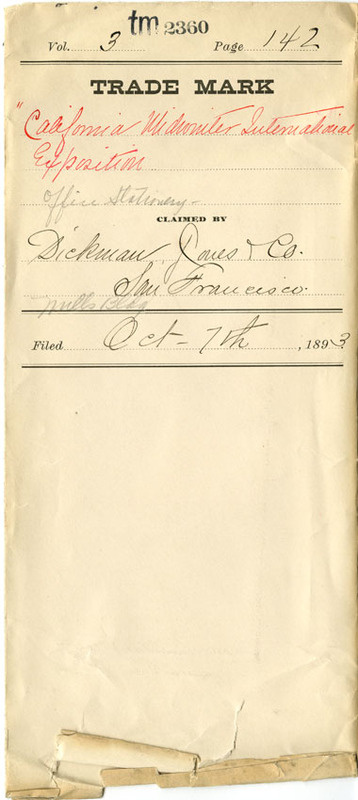 tm 2360
Vol. 3 Page 142
TRADE MARK
"California Midwinter International
Exposition
Office Stationery -
CLAIMED BY
Dickman, Jones & Co.
San Francisco.
Mills Bldg
Filed Oct - 7th, 1893